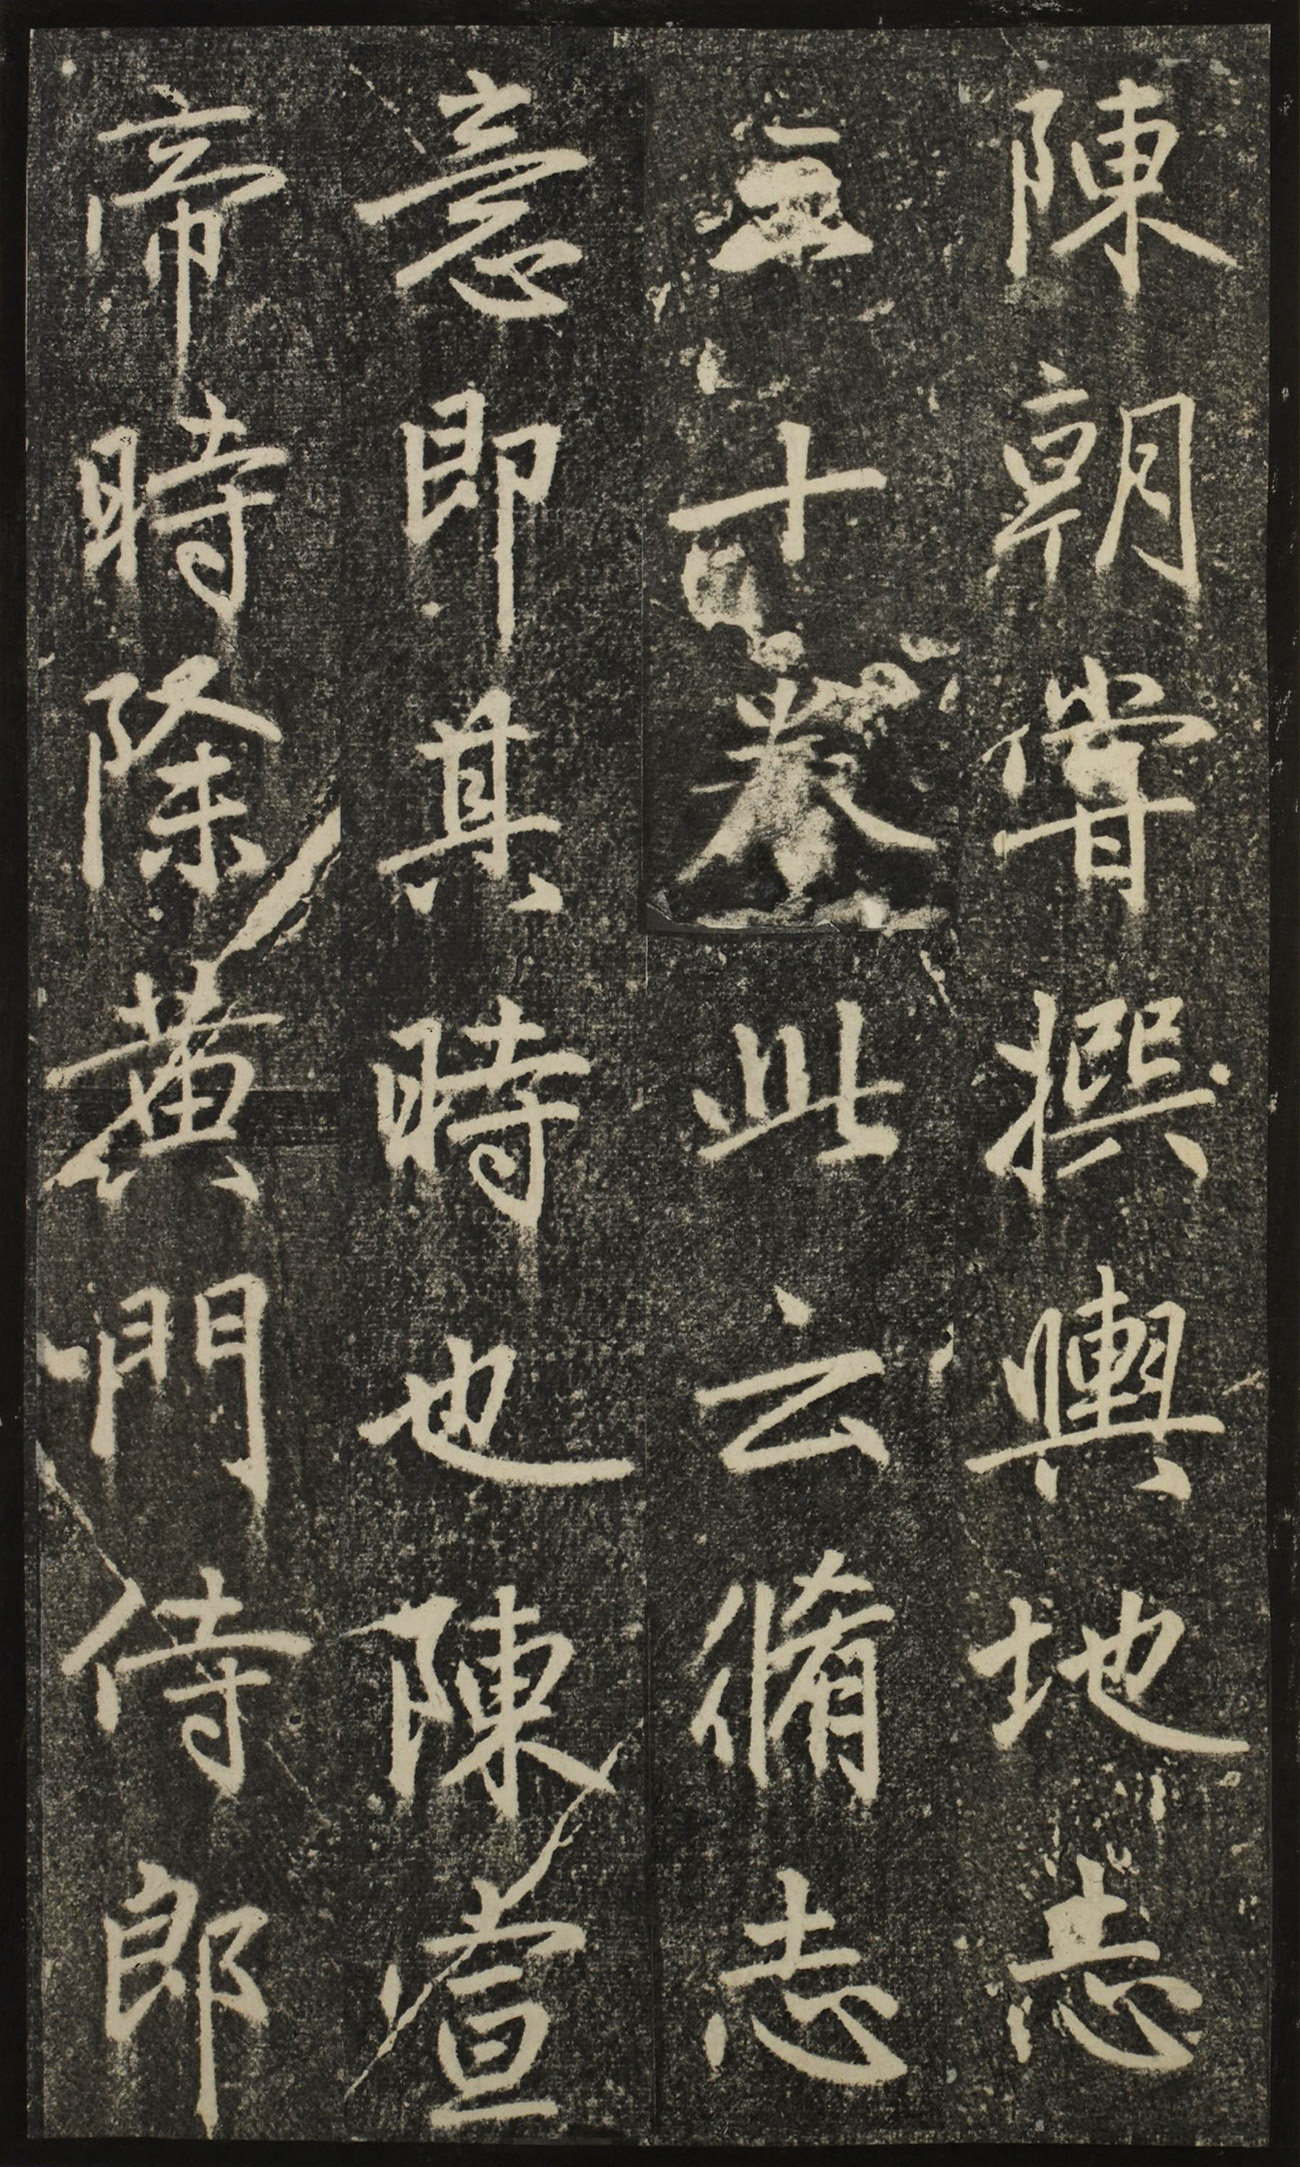 陳朝甞撰輿地志
三十卷此云脩志
意即其時也陳宣
帝時除黄門侍郎